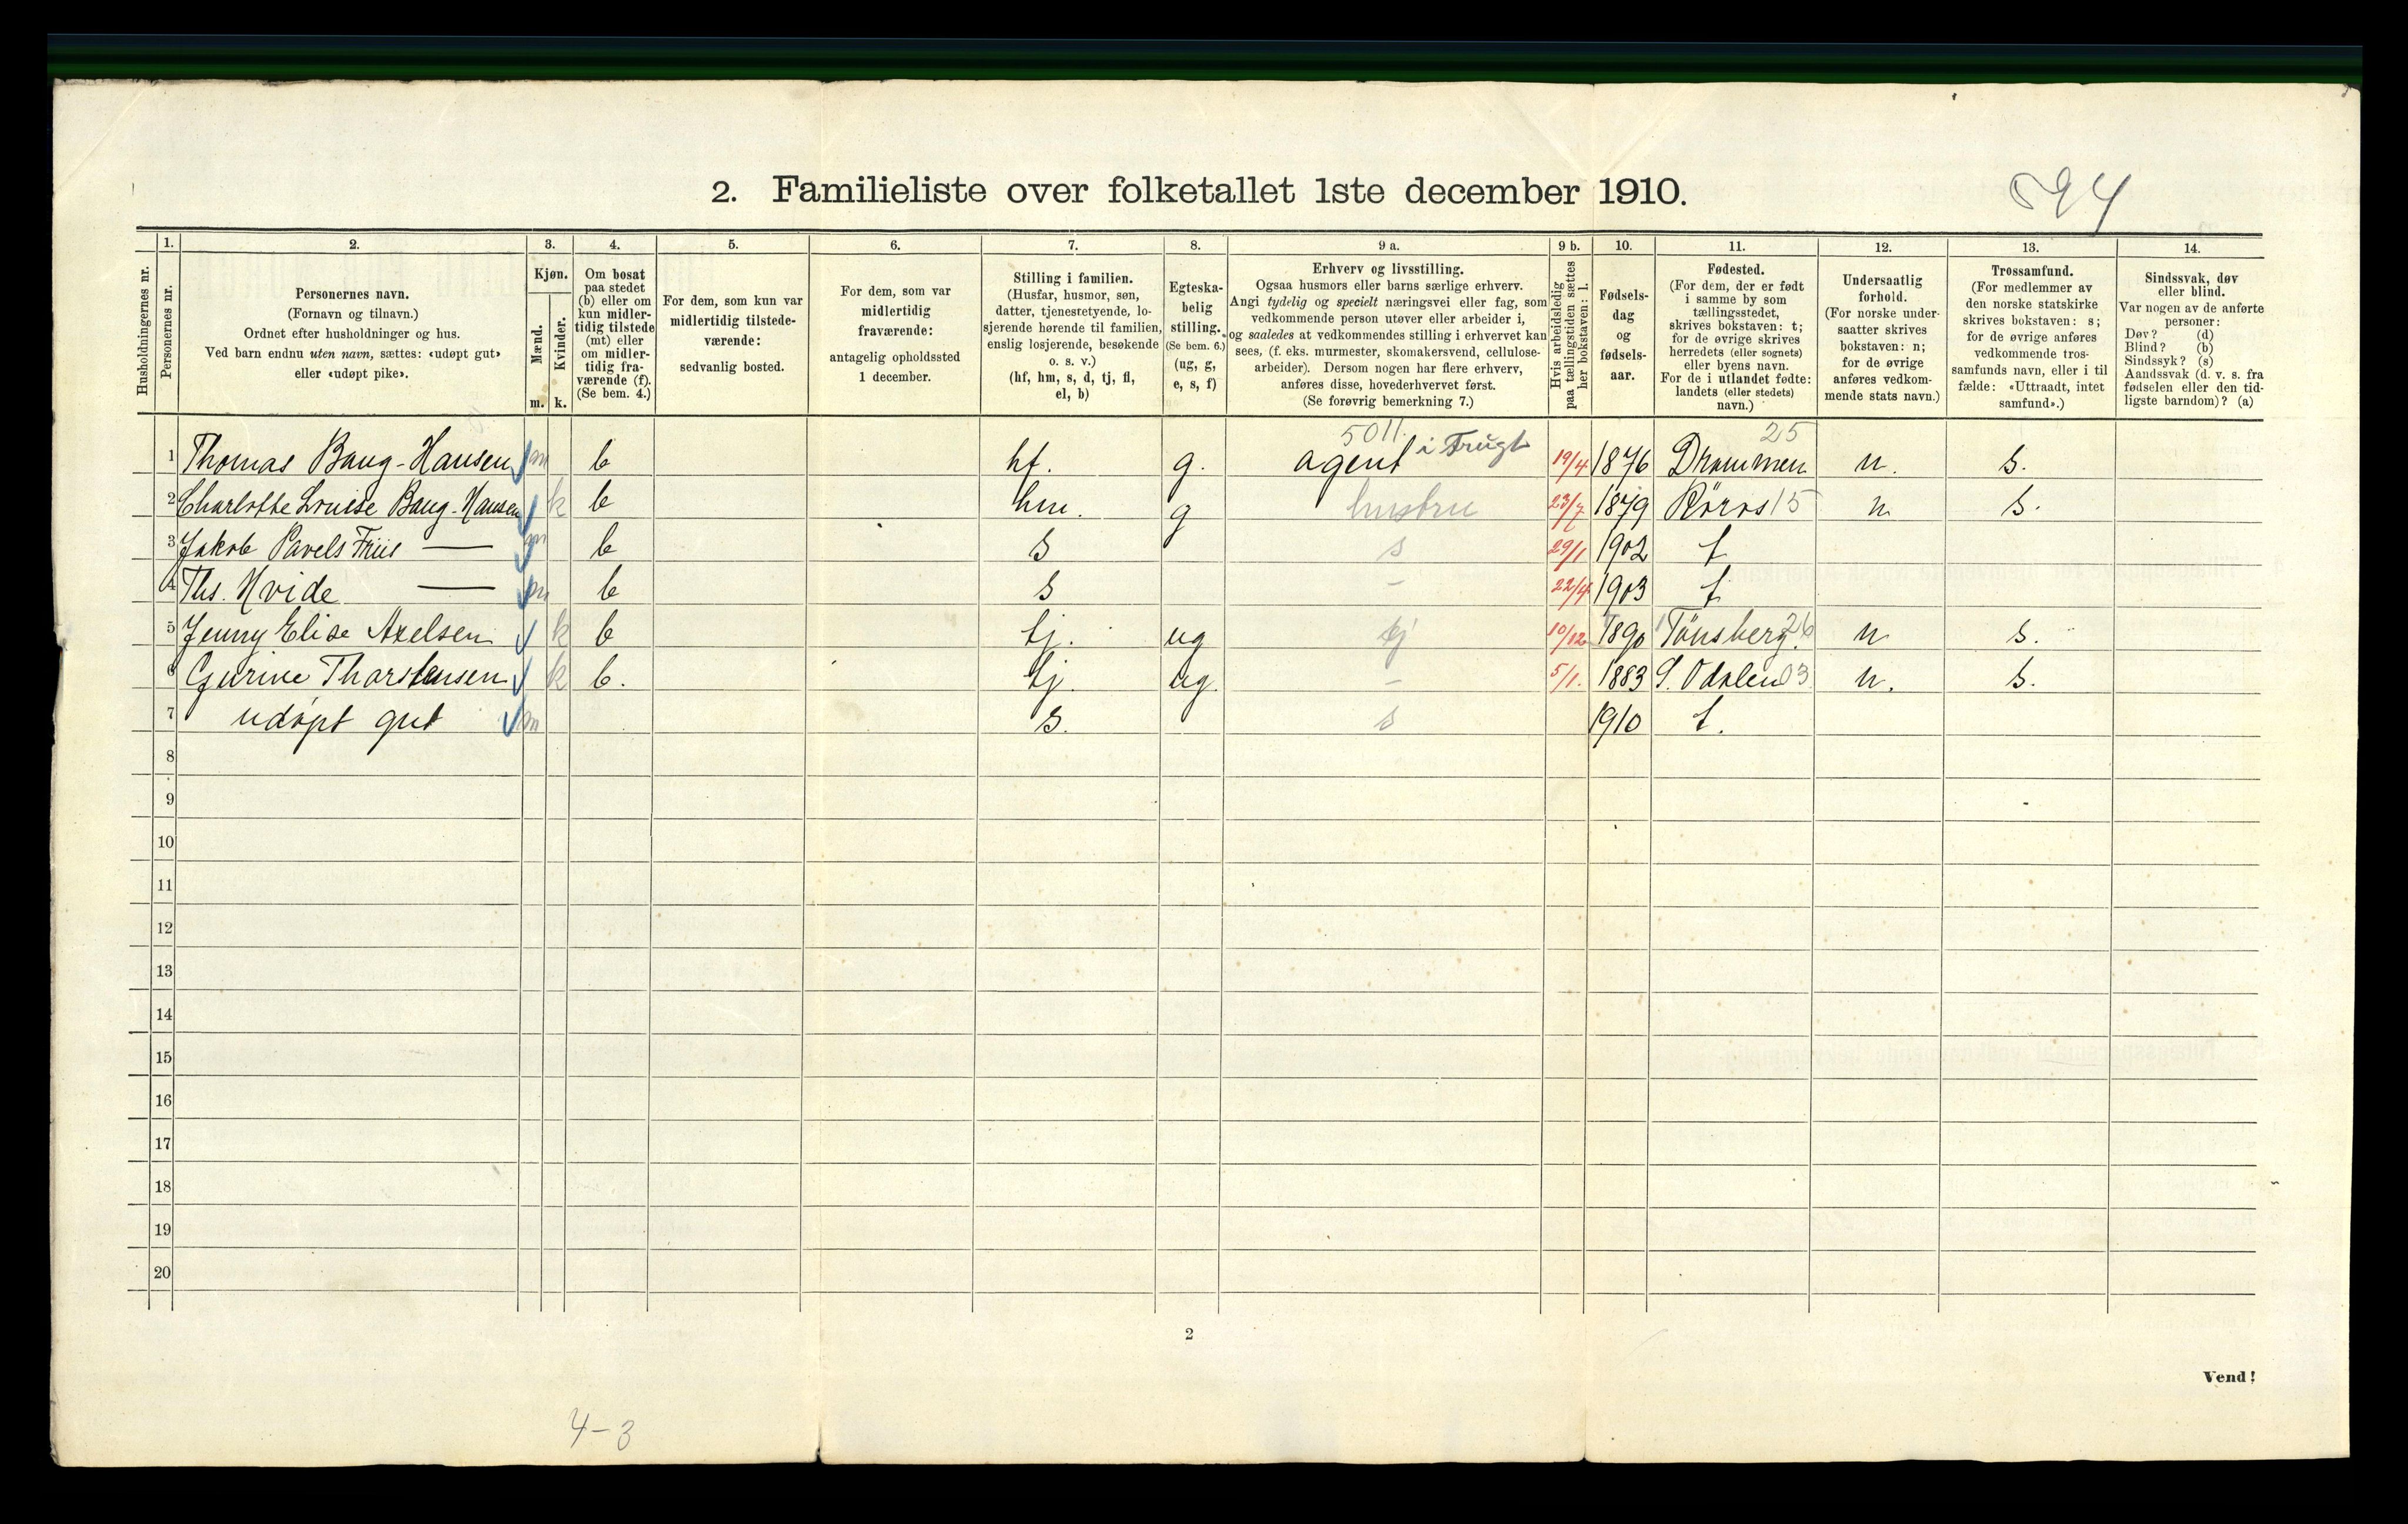 894
2. Familieliste over folketallet 1ste december 1910.
1. 2. 3. 4. 5. 6. 7. 8. 9 a. 9 b. 10. 11. 12. 13. 14.
Husholdningernes nr.
Personernes nr.
Personernes navn.
(Fornavn og tilnavn.)
Ordnet efter husholdninger og hus.
Ved barn endnu uten navn, sættes: «udøpt gut»
eller «udøpt pike».
Kjøn.
Mænd.
Kvinder.
m. k.
Om bosat
paa stedet
(b) eller om
kun midler-
tidig tilstede
(mt) eller
om midler-
tidig fra-
værende (f).
(Se bem. 4.)
For dem, som kun var
midlertidig tilstede-
værende:
sedvanlig bosted.
For dem, som var
midlertidig
fraværende:
antagelig opholdssted
1 december.
Stilling i familien.
(Husfar, husmor, søn,
datter, tjenestetyende, lo-
sjerende hørende til familien,
enslig losjerende, besøkende
o. s. v.)
(hf, hm, s, d, tj, fl,
el, b)
Egteska-
belig
stilling.
(Se bem. 6.)
(ug, g,
e, s, f)
Erhverv og livsstilling.
Ogsaa husmors eller barns særlige erhverv.
Angi tydelig og specielt næringsvei eller fag, som
vedkommende person utøver eller arbeider i,
og saaledes at vedkommendes stilling i erhvervet kan
sees, (f. eks. murmester, skomakersvend, cellulose-
arbeider). Dersom nogen har flere erhverv,
anføres disse, hovederhvervet først.
(Se forøvrig bemerkning 7.)
Hvis arbeidsledig
paa tællingstiden sættes
her bokstaven: l.
Fødsels-
dag
og
fødsels-
aar.
Fødested.
(For dem, der er født
i samme by som
tællingsstedet,
skrives bokstaven: t;
for de øvrige skrives
herredets (eller sognets)
eller byens navn.
For de i utlandet fødte:
landets (eller stedets)
navn.)
Undersaatlig
forhold.
(For norske under-
saatter skrives
bokstaven: n;
for de øvrige
anføres vedkom-
mende stats navn.)
Trossamfund.
(For medlemmer av
den norske statskirke
skrives bokstaven: s;
for de øvrige anføres
vedkommende tros-
samfunds navn, eller i til
fælde: «Uttraadt, intet
samfund».)
Sindssvak, døv
eller blind.
Var nogen av de anførte
personer:
Døv? (d)
Blind? (b)
Sindssyk? (s)
Aandssvak (d. v. s. fra
fødselen eller den tid-
ligste barndom)? (a)
5011. 25
1 Thomas Baug-Hansen m b hf. g. agent i Frugt 19/4 1876 Drammen n. s.
2 Charlotte Louise Baug-Hansen k b hm. g hustru 23/7 1879 Röros 15 n s.
3 Jakob Pavels Friis — m b s s 29/1 1902 t
4 Ths. Hvide — m b s - 22/4 1903 t
5 Jenny Elise Axelsen k b tj. ug tj 10/12 1890 Tönsberg. 26 n s.
6 Gurine Thorstensen k b. tj. ug. - 5/1. 1883 S. Odalen 03 n. s.
7 udøpt gut m s. s 1910 t.
8
9
10
11
12
13
14
15
16
17
18
19
20
2
Vend!
4-3